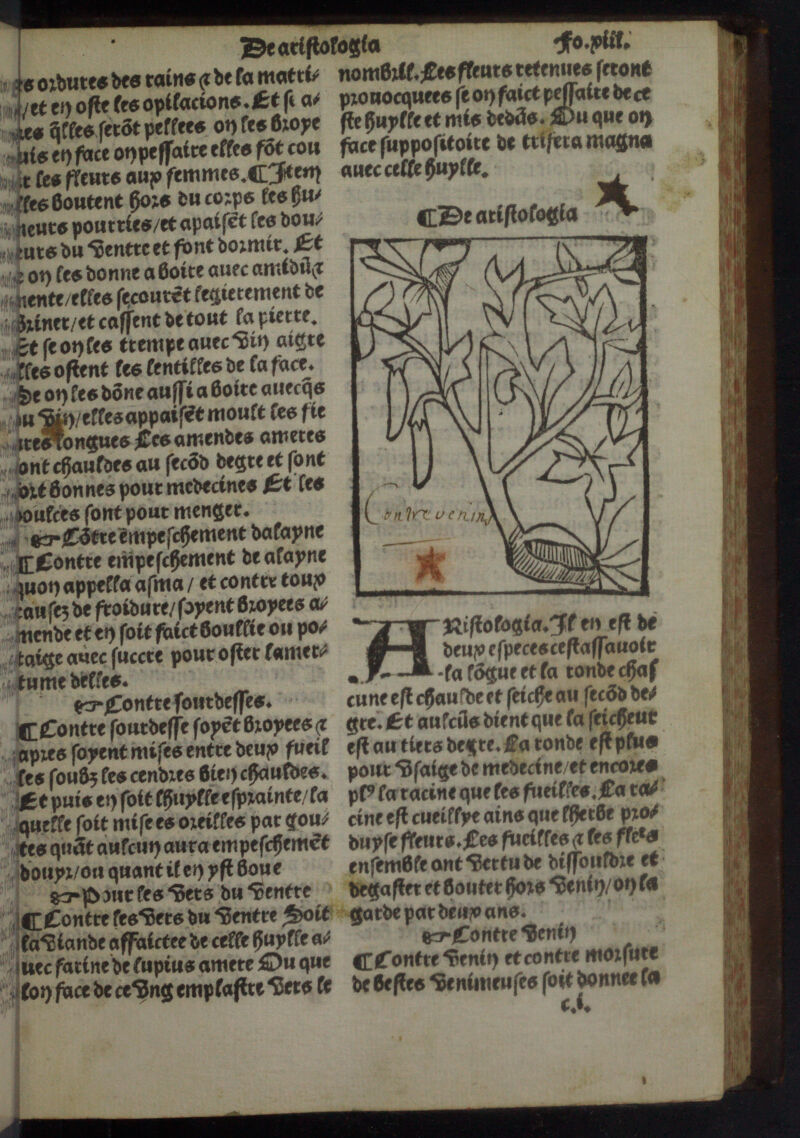 De aristologia
fo.xiii.
es ordutes des rains ⁊ de la matri⸗
/et en oste les opilacions. Et si a⸗
q̃lles serõt pellees on les broye
puis en face on pessaire elles fõt cou
les fleurs aux femmes. ¶ Item
elles boutent hors du corps les hu⸗
meurs pourries/et apaisẽt les dou⸗
leurs du ventre et font dormir. Et
on les donne a boire auec amidũ ⁊
mente/elles secourẽt legierement de
/et cassent de tout la pierre.
Et se on les trempe auec vin aigre
elles ostent les lentilles de la face.
Se on les dõne aussi a boire auecq̃s
du vin/elles appaisẽt moult les fie
ures longues Les amendes ameres
sont chauldes au secõd degre et sont
fort bonnes pour medecines Et les
doulces sont pour menger.
☞ Cõtre ẽmpeschement dalayne
¶ Contre empeschement de alayne
quon appella asma / et contre toux
causez de froidure/soyent broyees a⸗
mende et en soit faict boullie ou po⸗
taige auec succre pour oster lamer⸗
tume delles.
☞ Contre sourdesses.
¶ Contre sourdesse soyẽt broyees ⁊
apres soyent mises entre deux fueil
les soubz les cendres bien chauldes.
Et puis en soit lhuylle esprainte/la
quelle soit mise es oreilles par gou⸗
tes quãt aulcun aura empeschemẽt
douyr/ou quant il en yst boue
☞ Pour les vers du ventre
¶ Contre les vers du ventre Soit
la viande affaictee de celle huylle a⸗
uec farine de lupins amere Ou que
lon face de ce vng emplastre vers le
nombril. Les fleurs retenues seront
prouocquees se on faict pessaire de ce
ste huylle et mis dedãs. Ou que on
face suppositoire de trifera magna
auec celle huylle.
¶ De aristologia
Contre venin
ARistologia. Il en est de
deux especes cest assauoir
la lõgue et la ronde chas
cune est chaulde et seiche au secõd de⸗
gre. Et aulcũs dient que la seicheur
est au tiers degre. La ronde est plus
pour vsaige de medecine/et encores
plꝰ la racine que les fueilles. La ra⸗
cine est cueillye ains que lherbe pro⸗
duyse fleurs. Les fueilles ⁊ les flers
ensemble ont vertu de dissouldre et
degaster et bouter hors venin/on la
garde par deux ans.
☞ Contre venin
¶ Contre venin et contre morsure
de bestes venimeuses soit donnee la
c.i.